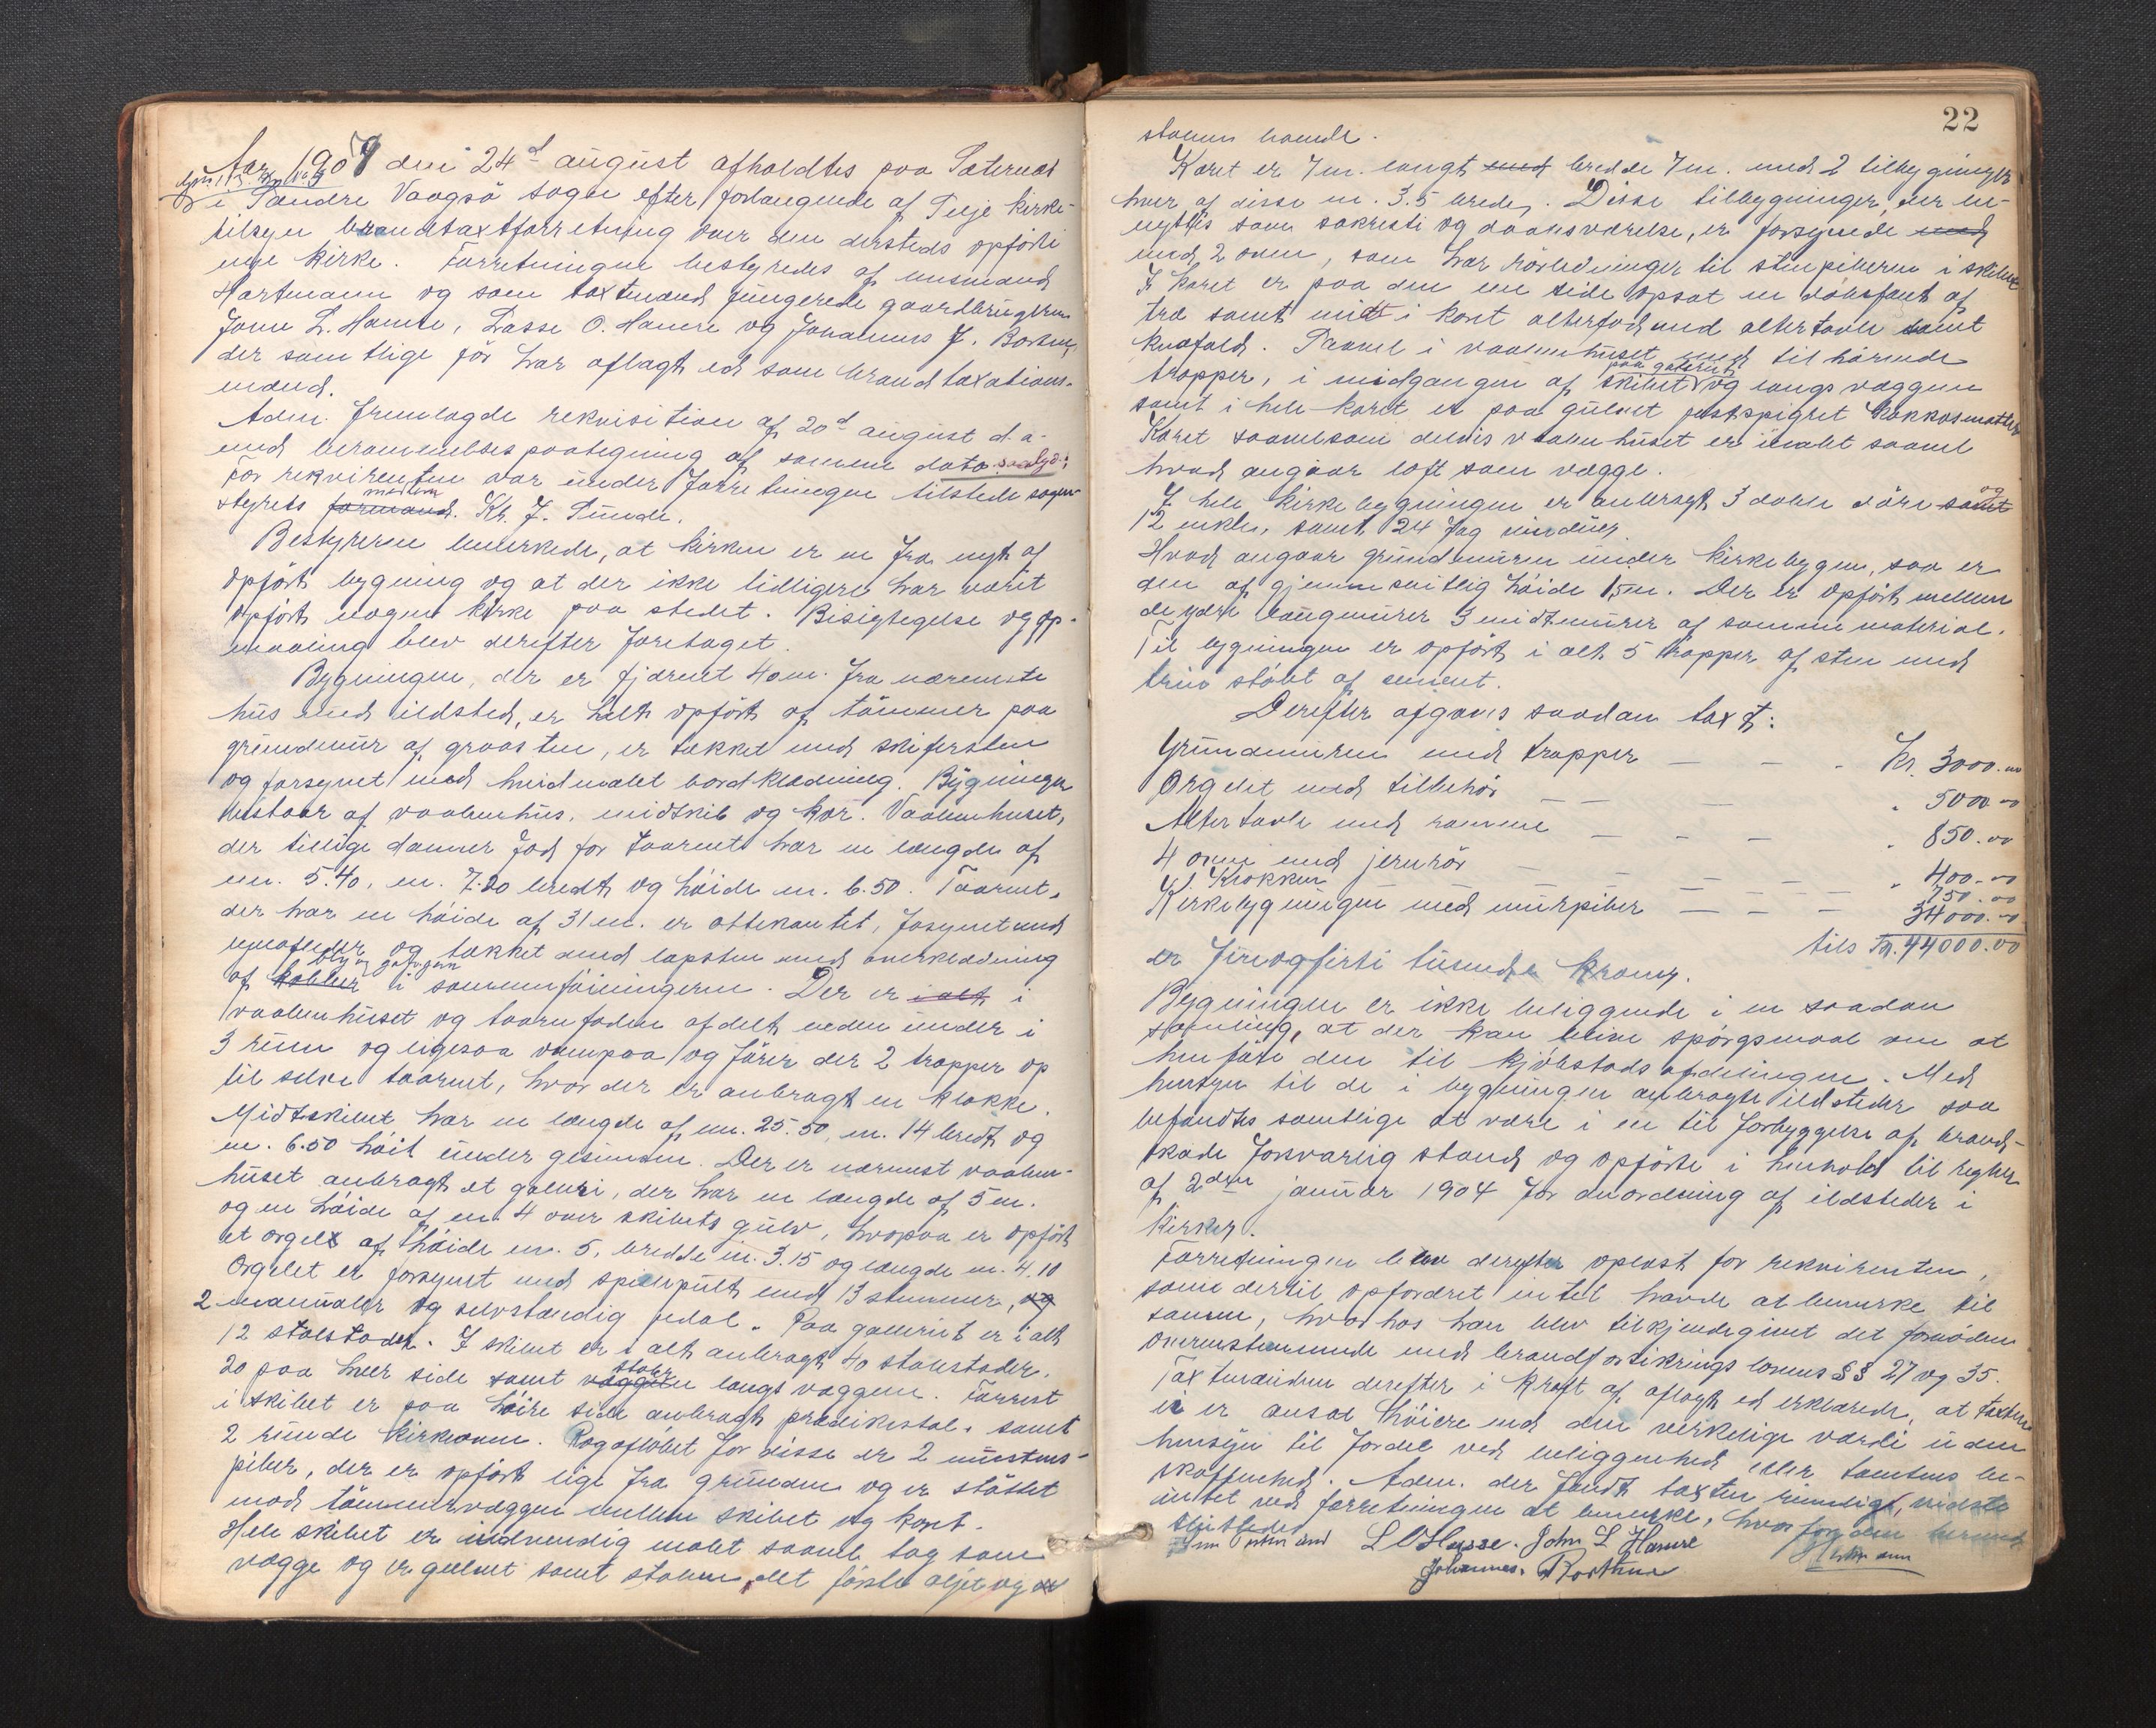 Aar 1907 den 24de august afholdtes paa Sæternes
i Søndre Vaagsö sogn efter forlangende af Tuje kirke-
tilsyn brandtaxtforretning over den dersteds opförte
nye kirke. Forretningen bestyredes af lensmand
Hartmann og som taxtmænd fungerede gaardbrugerne
John L. Hamre, Lasse O. Hamre og Johannes J.
der samtlige för har aflagt ed som brandtaxations-
mænd.
Adm. fremlagde rekvisition af 20de august d.a.
med berammelsespaategning af samme dato saalyd.:
For rekvirenten var under forretningen tilstede sogne-
styrets medlem formand. Kr. J. Tunde.
Bestyreren bemerkede, at kirken er en fra nyt af
opfört bygning og at der ikke tidligere har værit
opfört nogen kirke paa stedet. Besigtegelse og op-
maaling blev derefter foretaget.
Bygningen, der er fjærnet 40 m. fra nærmeste
hus med ildsted, er helt opfört af tömmer paa
grundmur af graasten, er tækket med skifersten
og forsynet med hvidmalet bordklædning. Bygningen
bestaar af vaabenhus, midtskib og kor. Vaabenhuset,
der tillige danner fod for taarnet har en længde af
m. 5.40, m. 7.20 bredt og höide m. 6.50. Taarnet,
der har en höide af 31 m. er ottekantet, forsynet med
og tækket med lapsten med overklædning
af kobber bly og galv. jern i sammenföiningerne. Der er i alt i
vaabenhuset og taarnfoden afdelt neden under i
3 rum og ligesaa ovenpaa og förer der 2 trapper op
til selve taarnet, hvor der er anbragt en klokke.
Midtskibet har en længde af m. 25.50, m. 14 bredt og
m. 6.50 höit under gesimsen. Der er nærmest vaaben-
huset anbragt et galleri, der har en længde af 5 m.
og en höide af m. 4 over skibets gulv, hvorpaa er opfört
et orgel af höide m. 5, bredde m. 3.15 og længde m. 4.10
Orgelet er forsynet med spillepult med 13 stemmer, og
2 manualer og selvstændig pedal. Paa galleriet er i alt
12 stolestader. I skibet er i alt anbragt 40 stolestader,
20 paa hver side samt stoler væggen langs væggene. Forrest
i skibet er paa höire side anbragt prædikestol, samt
2 runde kirkeovne. Rogaflöbet for disse er 2 murstens-
piber, der er opfört lige fra grunden og er stöttet
mod tömmervæggen mellem skibet og koret.
Hele skibet er indvendig malet saavel tag som
vægge og er gulvet samt stolene, det förste oljet og
22
stolene
Koret er 7 m. langt med bredde 7 m. med 2 tilbygninger
hver af disse m. 3.5 brede. Disse tilbygninger, der be-
nyttes som sakristi og daabsværelse, er forsynede med
med 2 ovne, som har rörledninger til stenpiberne i skibet
I koret er paa den ene side opsat en döbefont af
træ samt midt i koret alterfod med altertavle samt
knæfald. Saavel i vaabenhuset med tilhörende
trapper, i midgangen af skibet paa galleriet og langs væggene
samt i hele koret er paa gulvet fastspigret kokkosmatter
Koret saavelsom delvis vaabenhuset er umalet saavel
hvad angaar loft som vægge.
I hele kirkebygningen er anbragt 3 doble döre samt og
12 enkle, samt 24 fag vinduer
Hvad angaar grundmuren under kirkebygen, saa er
den af gjennemsnitlig höide 1,5 m. Der er opfört mellem
de ydre langmurer 3 midtmurer af samme material.
Til bygningen er opfört i alt 5 trapper af sten med
trin stöbt af cement.
Derefter afgaves saadan taxt:
Grundmuren med trapper — — - Kr. 3000.00
Orgelet med tilbehör — — — " 5000.00
Altertavle med ramme — — — " 850.00
4 ovne med jernrör — — — " 400.00
1 Klokken — — — — — 750.00
Kirkebygningen med murpiber — — — 34000.00
tils Kr. 44000.00
er fireogfirti tusende kroner.
Bygningen er ikke beliggende i en saadan
samling, at der kan blive spörgsmaal om at
henföre den til kjöbstadsafdelingen. Med
hensyn til de i bygningen anbragte ildsteder saa
befandtes samtlige at være i en til forbyggelse af brand-
skade forsvarlig stand og opförte i henhold til regler
af 2den januar 1904 for anordning af ildsteder i
kirker.
Forretningen blev derefter oplæst for rekvirenten,
som dertil opfordret intet havde at bemerke til
samme, hvorhos han blev tilkjendegivet det fornödne
overensstemmende med brandforsikringslovens §§ 27 og 35.
Taxtmændene derefter i kraft af aflagt ed erklærede, at taxten
ei er ansat höiere end den verkelige værdi uden
hensyn til fordel ved beliggenhed eller tomtens be-
skaffenhed. Adm. der fandt taxten rimelig, vidste
intet ved forretningen at bemerke, hvorfor den
sluttedes
L O Hamre. John L Hamre
Johannes.